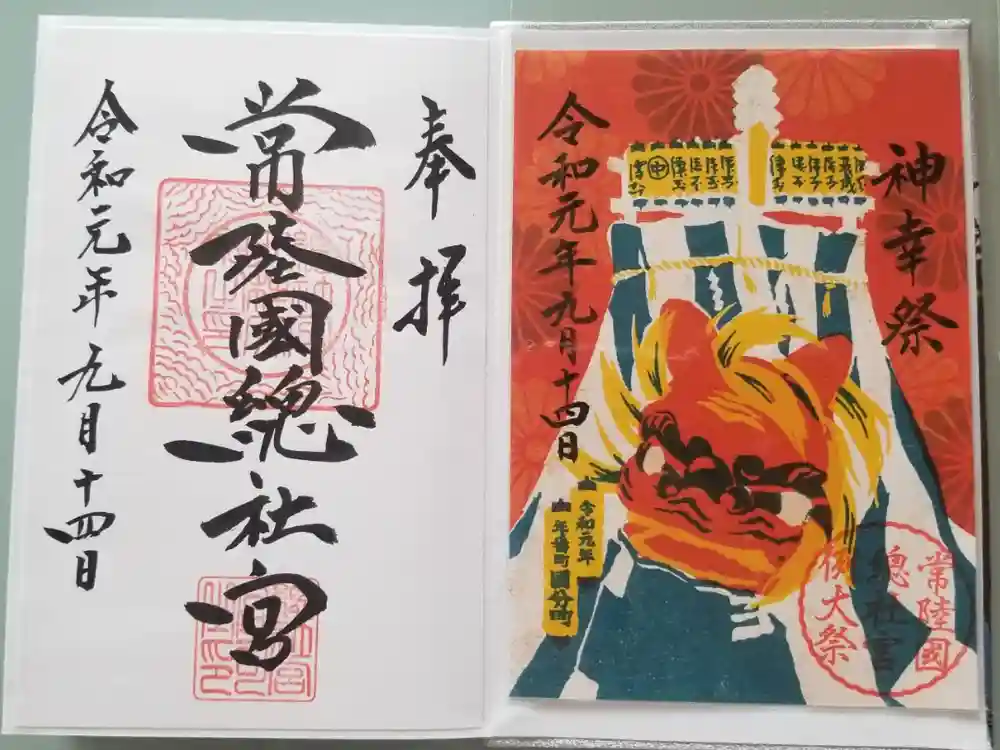 奉拝
常陸國總社宮
令和元年九月十四日
神幸祭
令和元年九月十四日
令和元年
年番町 國分町
常陸國
總社宮
例大祭